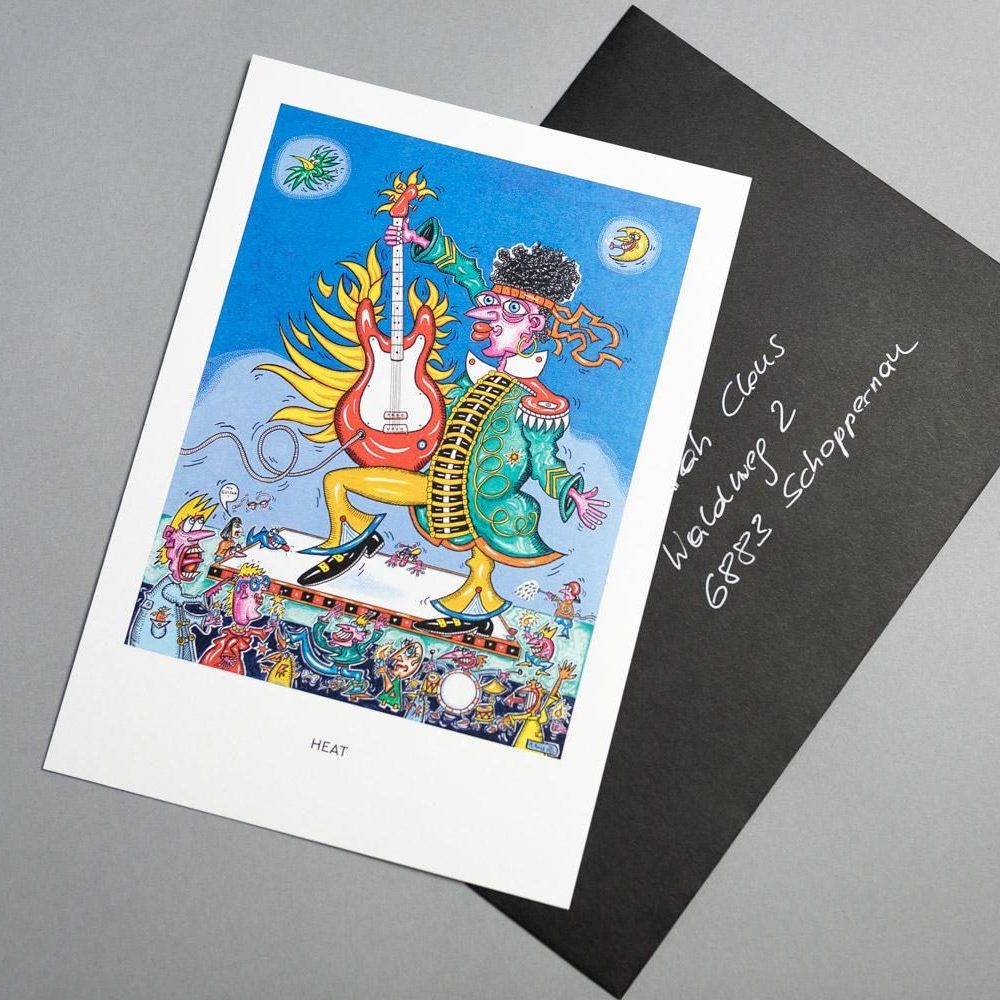 HEAT
Claus
Waldweg 2
6883 Schoppernau